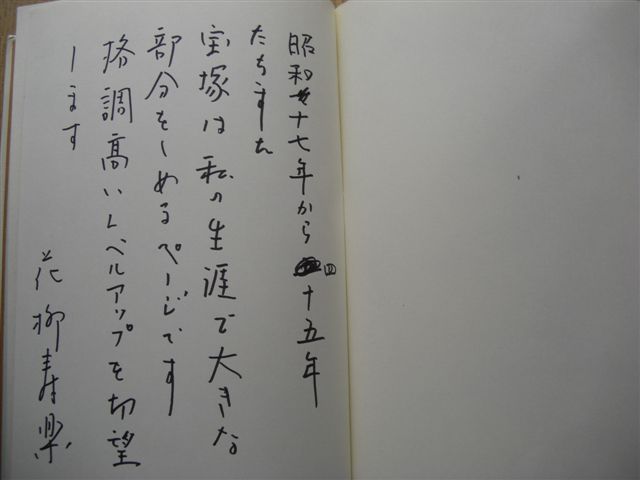 昭和十七年から四十五年
たちました
宝塚は私の生涯で大きな
部分をしめるページです
格調高いレベルアップを切望
します
花柳寿楽